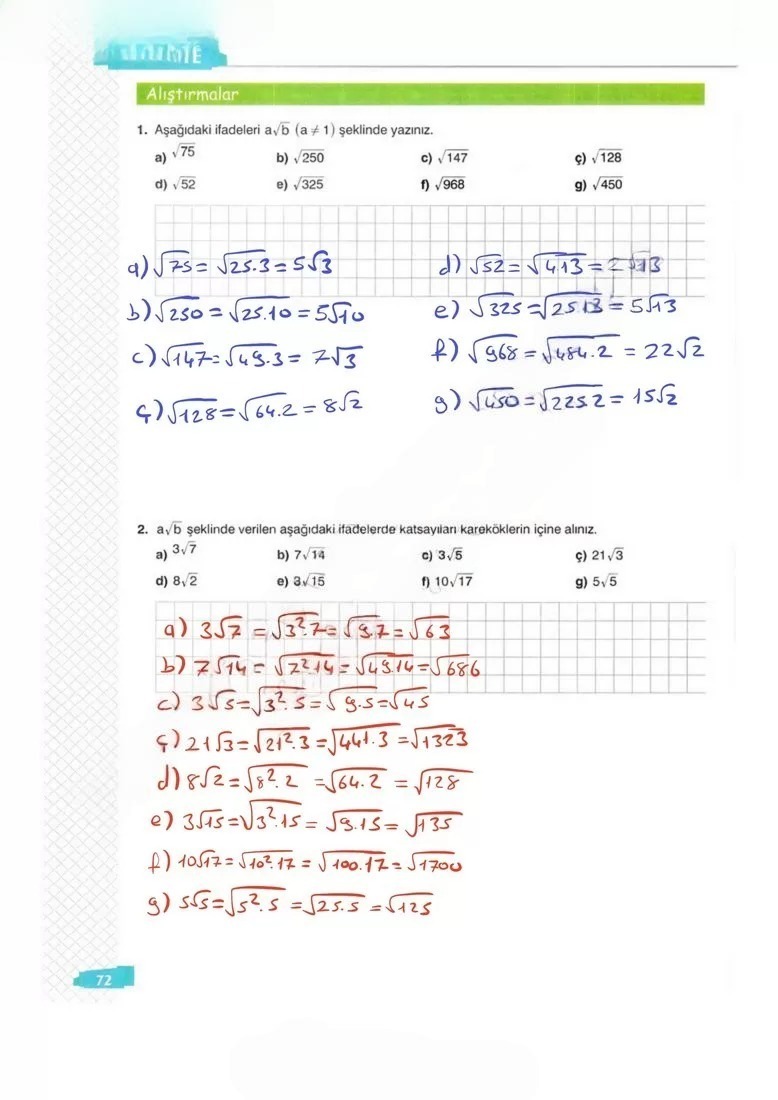 Alıştırmalar
1. Aşağıdaki ifadeleri a√b (a ≠ 1) şeklinde yazınız.
a) √75 b) √250 c) √147 ç) √128
d) √52 e) √325 f) √968 g) √450
a) √75 = √25.3 = 5√3 d) √52 = √4.13 = 2√13
b) √250 = √25.10 = 5√10 e) √325 = √25.13 = 5√13
c) √147 = √49.3 = 7√3 f) √968 = √484.2 = 22√2
ç) √128 = √64.2 = 8√2 g) √450 = √225.2 = 15√2
2. a√b şeklinde verilen aşağıdaki ifadelerde katsayıları kareköklerin içine alınız.
a) 3√7 b) 7√14 c) 3√5 ç) 21√3
d) 8√2 e) 3√15 f) 10√17 g) 5√5
a) 3√7 = √3².7 = √9.7 = √63
b) 7√14 = √7².14 = √49.14 = √686
c) 3√5 = √3².5 = √9.5 = √45
ç) 21√3 = √21².3 = √441.3 = √1323
d) 8√2 = √8².2 = √64.2 = √128
e) 3√15 = √3².15 = √9.15 = √135
f) 10√17 = √10².17 = √100.17 = √1700
g) 5√5 = √5².5 = √25.5 = √125
72